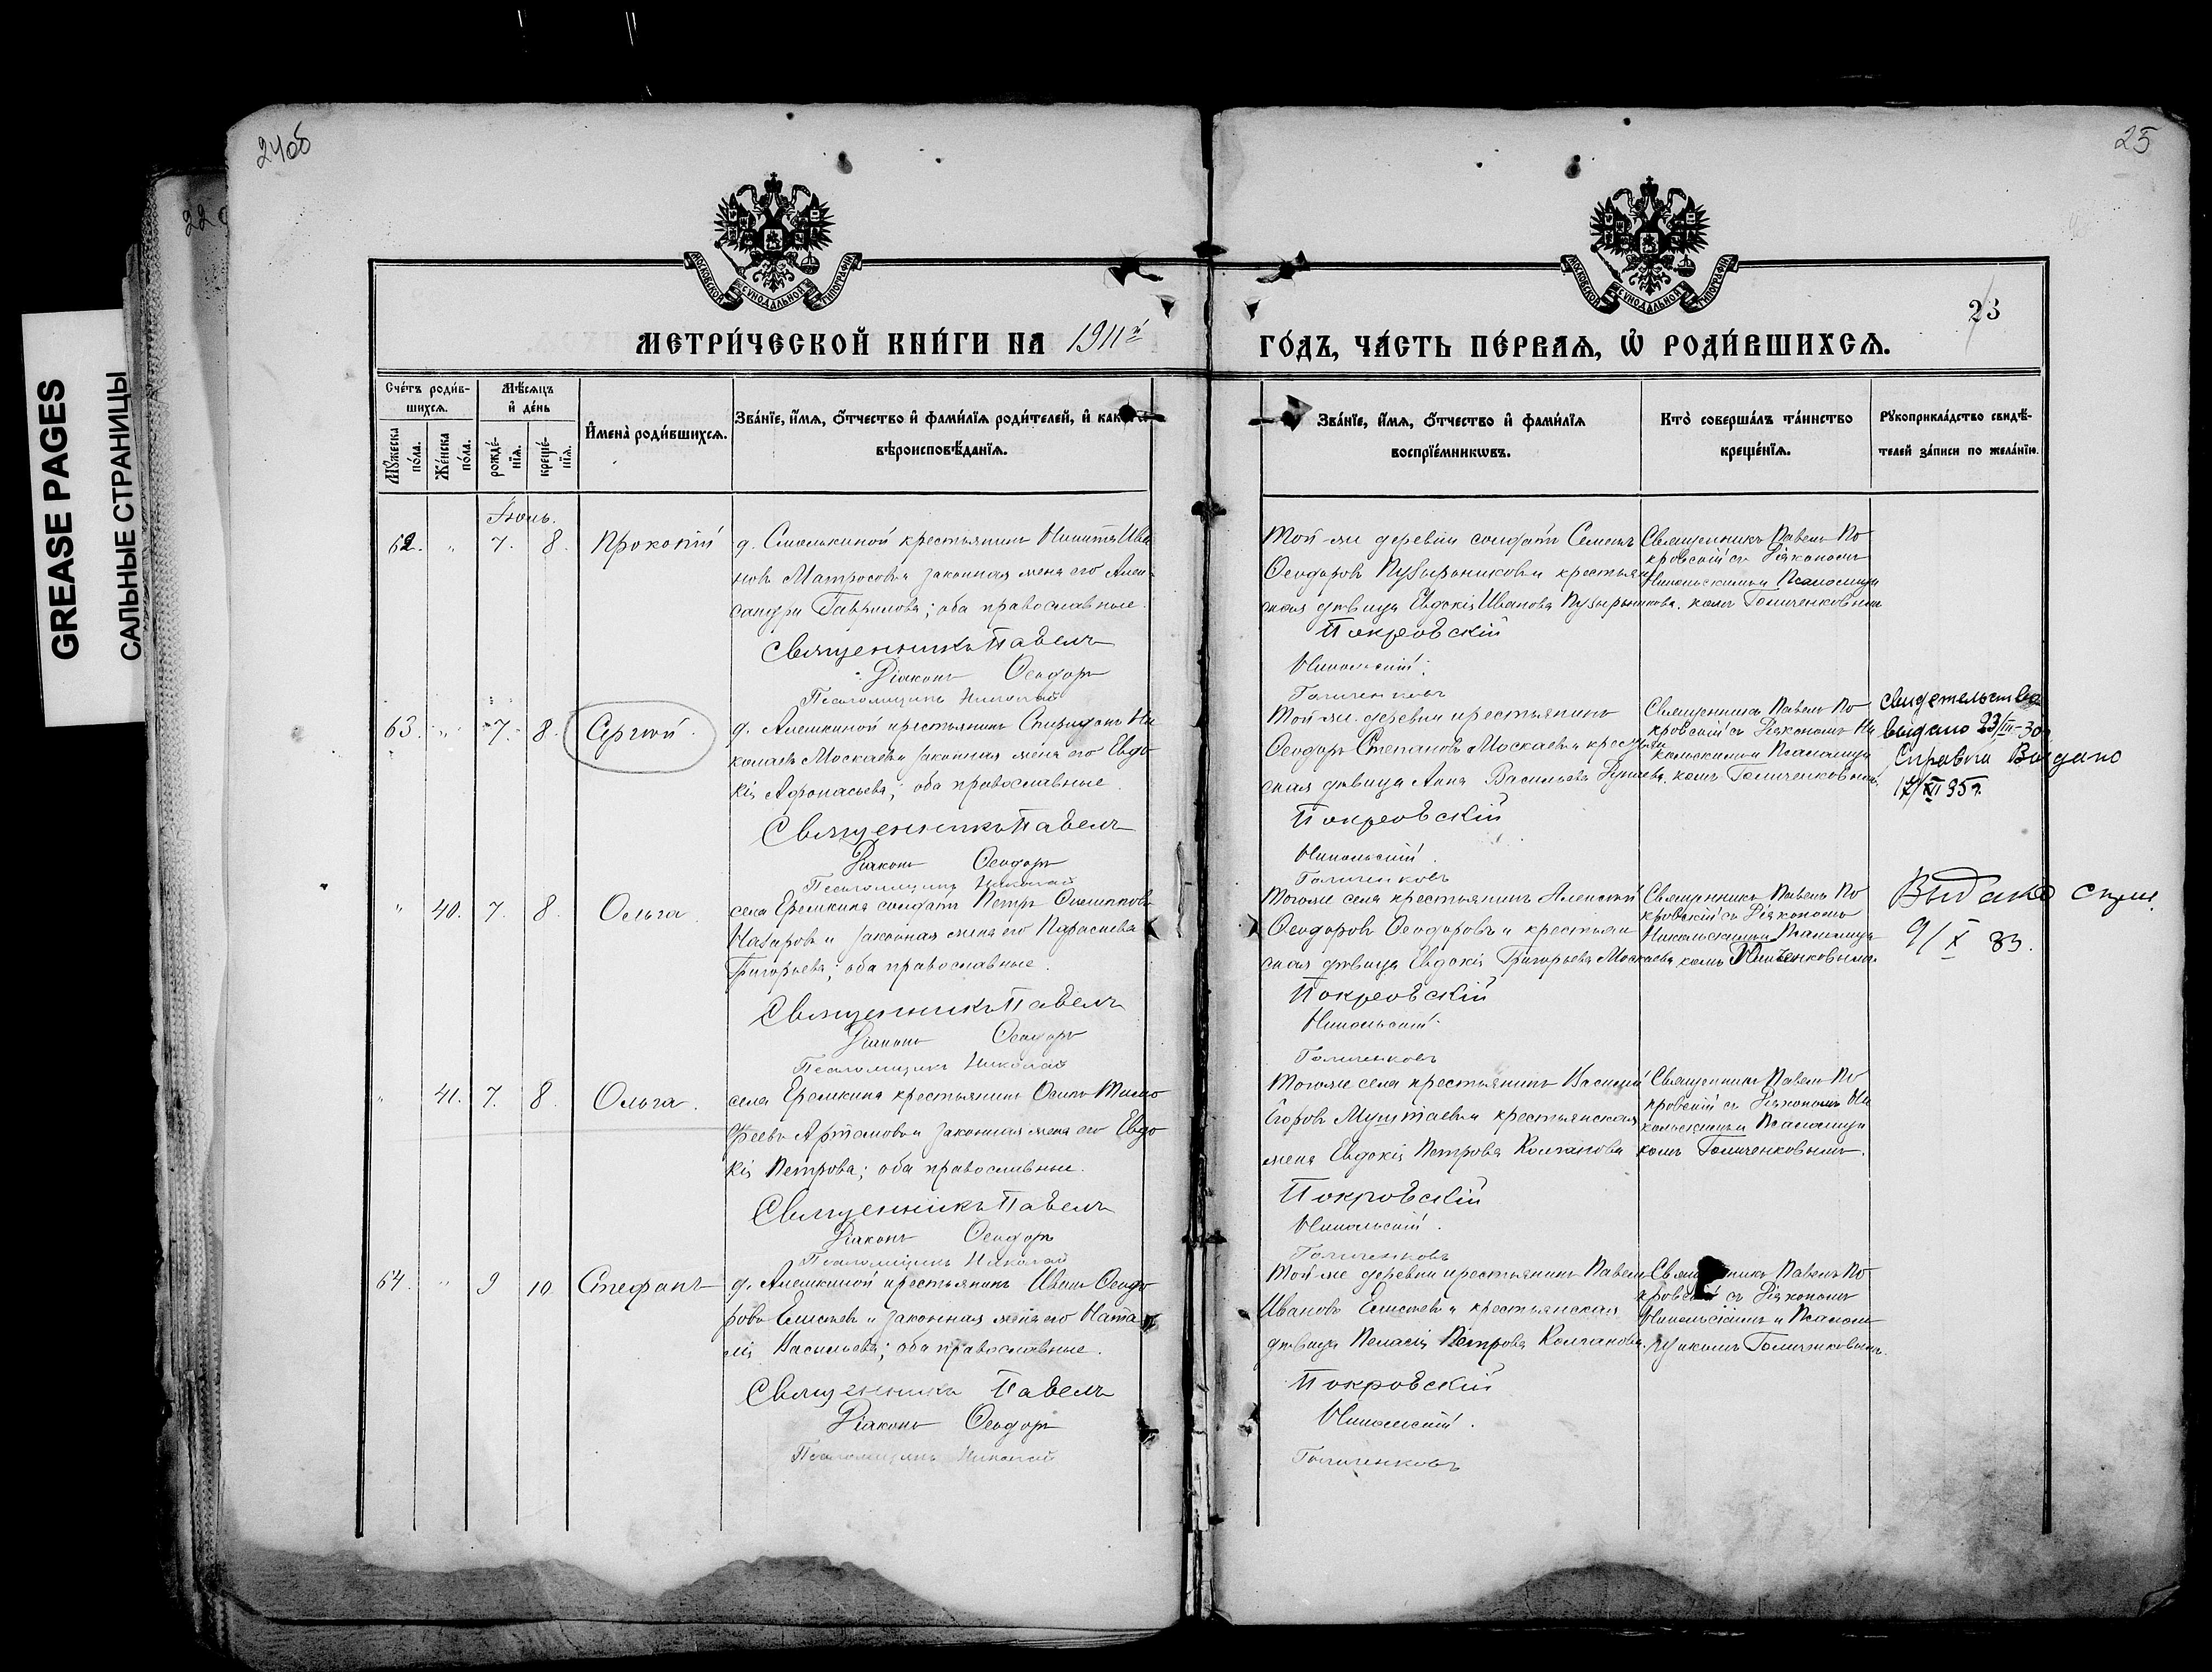 240б
25
22
GREASE PAGES
САЛЬНЫЕ СТРАНИЦЫ
МОСКОВСКОЙ СУНОДАЛЬНОЙ ТИПОГРАФІИ
МОСКОВСКОЙ СУНОДАЛЬНОЙ ТИПОГРАФІИ
23
МЕТРИ́ЧЕСКОЙ КНИ́ГИ НА 1911й
ГО́ДЪ, ЧА́СТЬ ПЕ́РВАЯ, Ѡ РОДИ́ВШИХСЯ.
Сче́тъ роди́в-
шихся.
Мꙋжеска по́ла.
Же́нска по́ла.
Мѣ́сяцъ
и де́нь
рожде́-
нія.
креще́-
нія.
Имена̀ роди́вшихся.
Зва́ніе, и́мя, о́тчество и фами́лія роди́телей, и како́гѡ
вѣроисповѣ́данія.
Зва́ніе, и́мя, о́тчество и фами́лія
воспріе́мникѡвъ.
Кто̀ соверша́лъ та́инство
креще́нія.
Рꙋкоприкла́дство свидѣ́-
телей за́писи по жела́нію.
Іюнь.
62. " 7. 8. Прокопій
д. Смолькиной крестьянинъ Никита Ива
новъ Матросовъ и законная жена его Алек-
сандра Гаврилова; оба православные.
Священникъ Павелъ
Діаконъ Ѳеодоръ
Псаломщикъ Николай
Той же деревни солдатъ Семенъ
Ѳеодоровъ Пузырниковъ и крестьян
ская дѣвица Евдокія Иванова Пузырникова.
Покровскій
Никольскій.
Голиченковъ
Священникъ Павелъ По
кровскій съ Діакономъ
Никольскимъ и Псаломщи
комъ Голиченковымъ
63. " 7. 8. Сергій.
д. Алешкиной крестьянинъ Спиридонъ Ни
колаевъ Москаевъ и законная жена его Евдо
кія Афонасьева; оба православные.
Священникъ Павелъ
Діаконъ Ѳеодоръ
Псаломщикъ Николай
Той же деревни крестьянинъ
Ѳеодоръ Степановъ Москаевъ и крестьян
ская дѣвица Анна Васильева
Покровскій
Никольскій.
Голиченковъ
Священникъ Павелъ По
кровскій съ Діакономъ Ни
кольскимъ и Псаломщи
комъ Голиченковымъ.
Свидетельство
выдано 23/III-30г
Справка Выдано
17/XII 35г.
" 40. 7. 8. Ольга
села Еремкина солдатъ Петръ
Назаровъ и законная жена его Параскева
Григорьева; оба православные.
Священникъ Павелъ
Діаконъ Ѳеодоръ
Псаломщикъ Николай
Того же села крестьянинъ Алексѣй
Ѳеодоровъ Ѳеодоровъ и крестьян
ская дѣвица Евдокія Григорьева Москаева
Покровскій
Никольскій.
Голиченковъ
Священникъ Павелъ По
кровскій съ Діакономъ
Никольскимъ и Псаломщи
комъ Голиченковымъ.
Выдано
9/X 83.
" 41. 7. 8. Ольга.
села Еремкина крестьянинъ Осипъ Тимо
феевъ Артамовъ и законная жена его Евдо
кія Петрова; оба православные.
Священникъ Павелъ
Діаконъ Ѳеодоръ
Псаломщикъ Николай
Того же села крестьянинъ Василій
Егоровъ Муштаевъ и крестьянская
жена Евдокія Петрова Колчанова
Покровскій
Никольскій.
Голиченковъ
Священникъ Павелъ По
кровскій съ Діакономъ Ни
кольскимъ и Псаломщи
комъ Голиченковымъ.
64. " 9 10. Стефанъ
д. Алешкиной крестьянинъ Иванъ Ѳеодо
ровъ Елисѣевъ и законная жена его Ната
лія Васильева; оба православные.
Священникъ Павелъ
Діаконъ Ѳеодоръ
Псаломщикъ Николай
Той же деревни крестьянинъ Павелъ
Ивановъ Елисѣевъ и крестьянская
дѣвица Пелагія Петрова Колчанова.
Покровскій
Никольскій.
Голиченковъ
Священникъ Павелъ По
кровскій съ Діакономъ
Никольскимъ и Псалом
щикомъ Голиченковымъ.